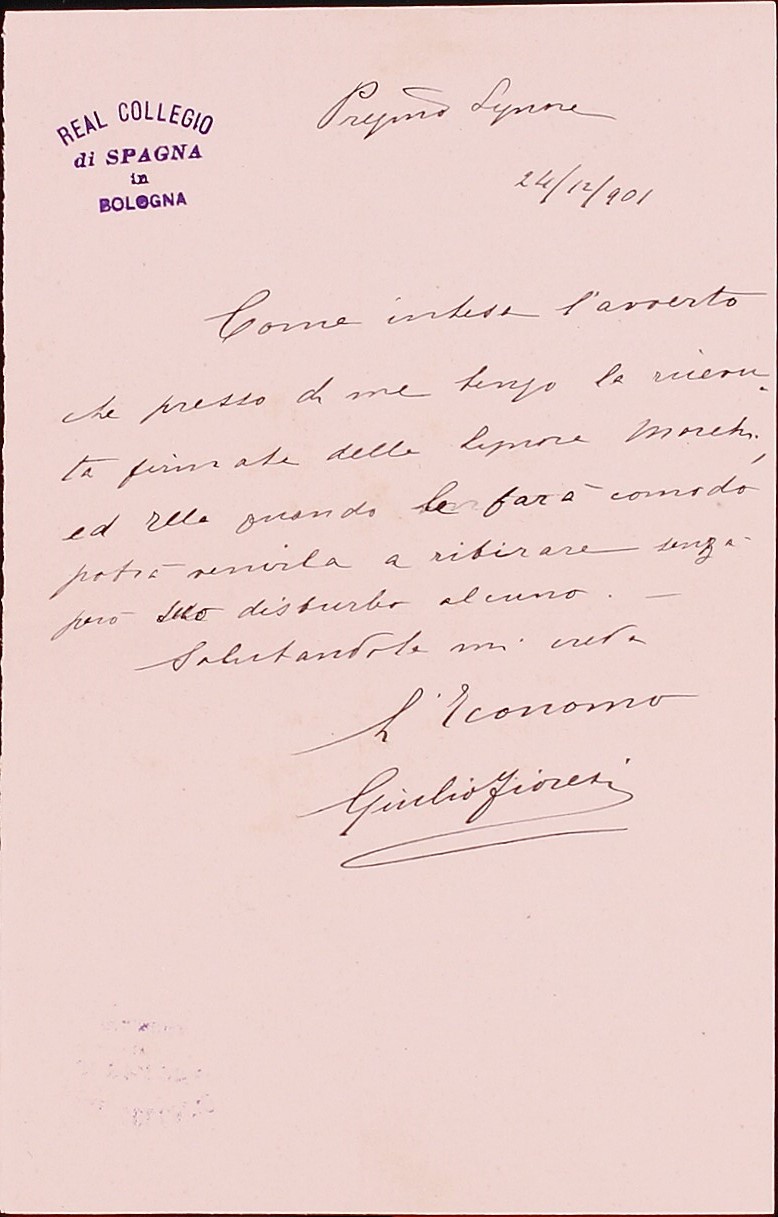 REAL COLLEGIO
di SPAGNA
in
BOLOGNA
Pregmo Signore
24/12/901
Come intesa l'avverto
che presso di me tengo la ricevu-
ta firmata della Signora Moreti,
ed Ella quando le farà comodo
potrà venirla a ritirare senza
però suo disturbo alcuno. —
Salutandola mi creda
L'Economo
Giulio Fioresi